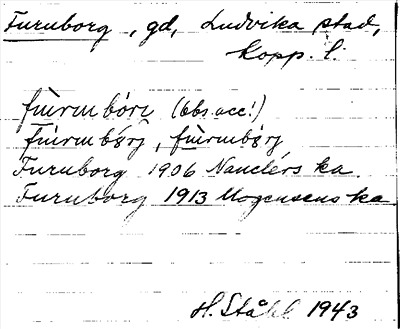 Furuborg, gd, Ludvika stad,
Kopp. l.
fùrmbórj (obs. acc!)
fùrmbórj, fùrmbørj
Furuborg 1906 Nanclérs ka.
Furuborg 1913 Mogensens ka
H. Ståhl 1943